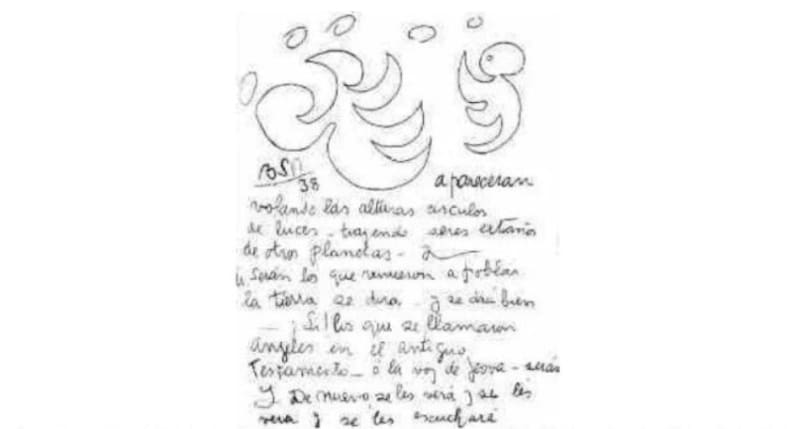 BSP
38
apareceran
volando las alturas circulos
de luces - trayendo seres extraños
de otros planetas -
serán los que vinieron a poblar
la tierra se dirá - y se dirá bien
- ¡Si! los que se llamaron
angeles en el antiguo
Testamento - o la voz de Jeova - serán
Y De nuevo se les verá y se les
vera y se les escuchará